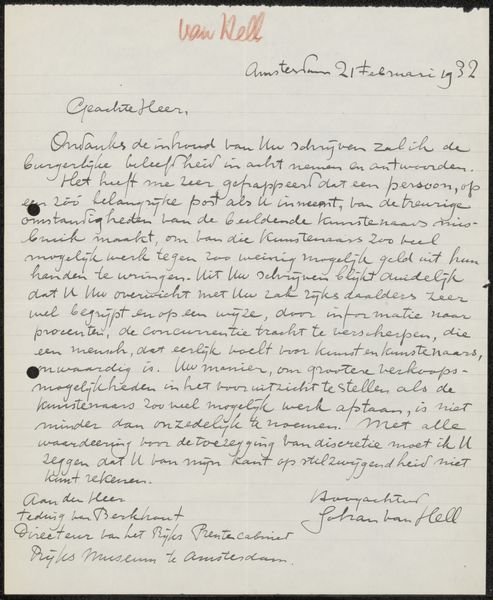 van Hell
Amsterdam 21 Februari 1932
Geachte Heer,
Ondanks de inhoud van Uw schrijven zal ik de
burgerlijke beleefdheid in acht nemen en antwoorden.
Het heeft me zeer gefrappeerd dat een persoon, op
een zóó belangrijke post als U inneemt, van de treurige
omstandigheden van de beeldende kunstenaars mis-
bruik maakt, om van die kunstenaars zoo veel
mogelijk werk tegen zoo weinig mogelijk geld uit hun
handen te wringen. Uit Uw schrijven blijkt duidelijk
dat U Uw overwicht met Uw zak rijksdaalders zeer
wel begrijpt en op een wijze, door informatie naar
procenten, de concurrentie tracht te verscherpen, die
een mensch, dat eerlijk voelt voor kunst en kunstenaars,
onwaardig is. Uw manier, om grootere verkoops-
mogelijkheden in het vooruitzicht te stellen als de
kunstenaars zoo veel mogelijk werk afstaan, is niet
minder dan onzedelijk te noemen. Met alle
waardeering voor de toezegging van discretie moet ik U
zeggen dat U van mijn kant op stilzwijgendheid niet
kunt rekenen.
Aan den Heer
Teding van Berkhout
Directeur van het Rijks Prentencabinet
Rijks Museum te Amsterdam.
Hoogachtend
Johan van Hell